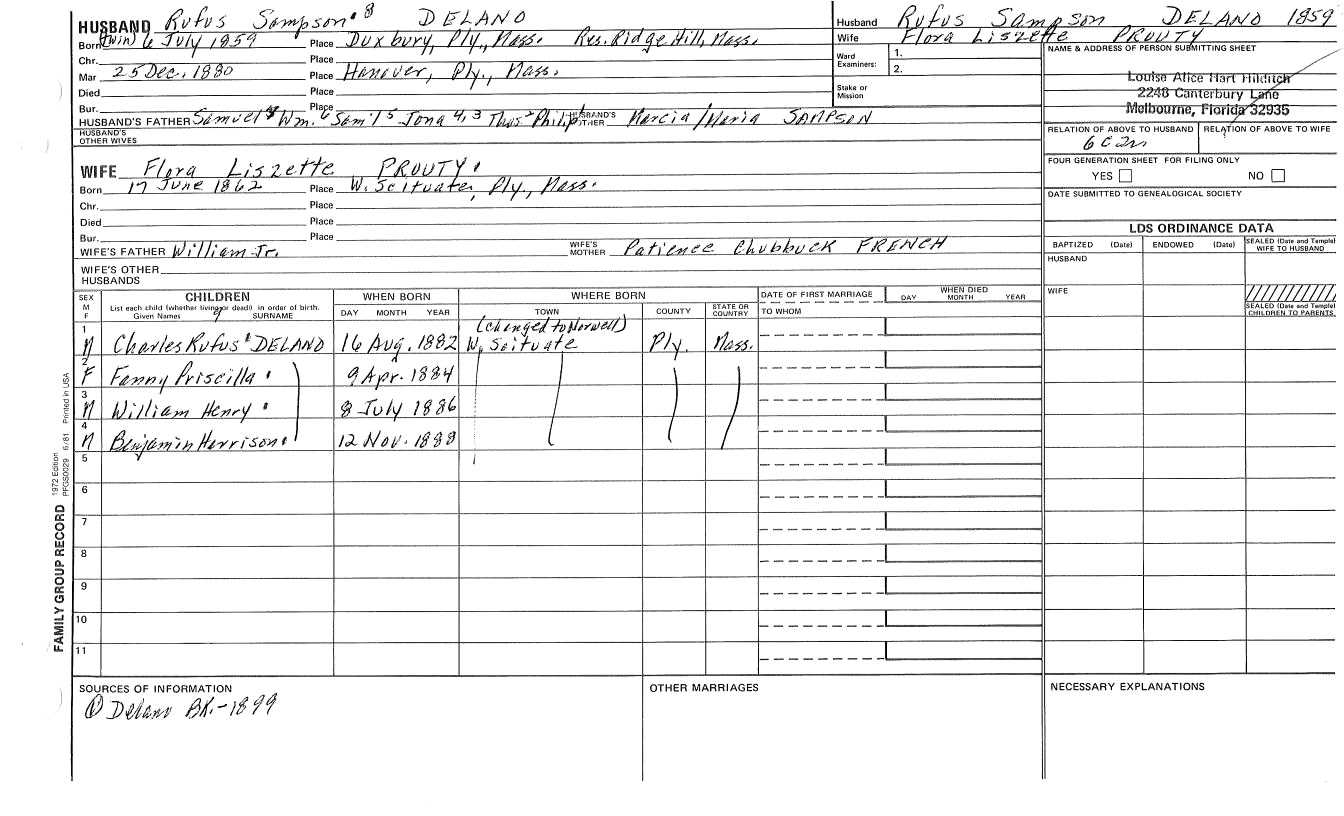 HUSBAND Rufus Sampson 8 DELANO
Born (twin) 6 July 1859 Place Duxbury, Ply., Mass. Res. Ridge Hill, Mass.
Chr. Place
Mar 25 Dec. 1880 Place Hanover, Ply., Mass.
Died Place
Bur. Place
HUSBAND'S FATHER Samuel Wm. 6 Sam'l 5 Jona 4,3 Thos 2 Philip 1 HUSBAND'S MOTHER Marcia/Maria SAMPSON
HUSBAND'S OTHER WIVES
WIFE Flora Liszette PROUTY
Born 17 June 1862 Place W. Scituate, Ply., Mass.
Chr. Place
Died Place
Bur. Place
WIFE'S FATHER William Jr. WIFE'S MOTHER Patience Chubbuck FRENCH
WIFE'S OTHER HUSBANDS
Husband Rufus Sampson DELANO 1859
Wife Flora Liszette PROUTY
Ward Examiners: 1.
2.
Stake or Mission
NAME & ADDRESS OF PERSON SUBMITTING SHEET
Louise Alice Hart Hilditch
2248 Canterbury Lane
Melbourne, Florida 32935
RELATION OF ABOVE TO HUSBAND RELATION OF ABOVE TO WIFE
6C2n
FOUR GENERATION SHEET FOR FILING ONLY
YES NO
DATE SUBMITTED TO GENEALOGICAL SOCIETY
LDS ORDINANCE DATA
BAPTIZED (Date) ENDOWED (Date) SEALED (Date and Temple) WIFE TO HUSBAND
HUSBAND
WIFE
SEALED (Date and Temple) CHILDREN TO PARENTS
SEX M F CHILDREN WHEN BORN WHERE BORN DATE OF FIRST MARRIAGE WHEN DIED
List each child (whether living or dead) in order of birth.
Given Names SURNAME DAY MONTH YEAR TOWN COUNTY STATE OR COUNTRY TO WHOM DAY MONTH YEAR
1 M Charles Rufus DELANO 16 Aug. 1882 W. Scituate (changed to Norwell) Ply. Mass.
2 F Fanny Priscilla 9 Apr. 1884
3 M William Henry 8 July 1886
4 M Benjamin Harrison 12 Nov. 1888
5
6
7
8
9
10
11
SOURCES OF INFORMATION OTHER MARRIAGES NECESSARY EXPLANATIONS
① Delano BK.-1899
FAMILY GROUP RECORD 1972 Edition PFGS0029 6/81 Printed in USA